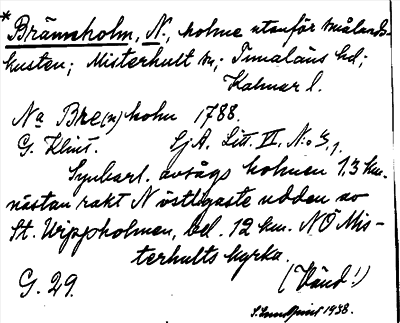 * Brännsholm, N., holme utanför Smålands-
kusten; Misterhult sn; Tunaläns hd;
Kalmar l.
Na Bre(n)holm 1788.
G. Klint. SjA. Litt. VI, No
Synbarl. avsågs holmen 1,3 km.
nästan rakt N östligaste udden av
St. Vippholmen, bel. 12 km. NÖ Mis-
terhults kyrka.
G. 29. (Vänd!)
S. Lundqvist 1938.